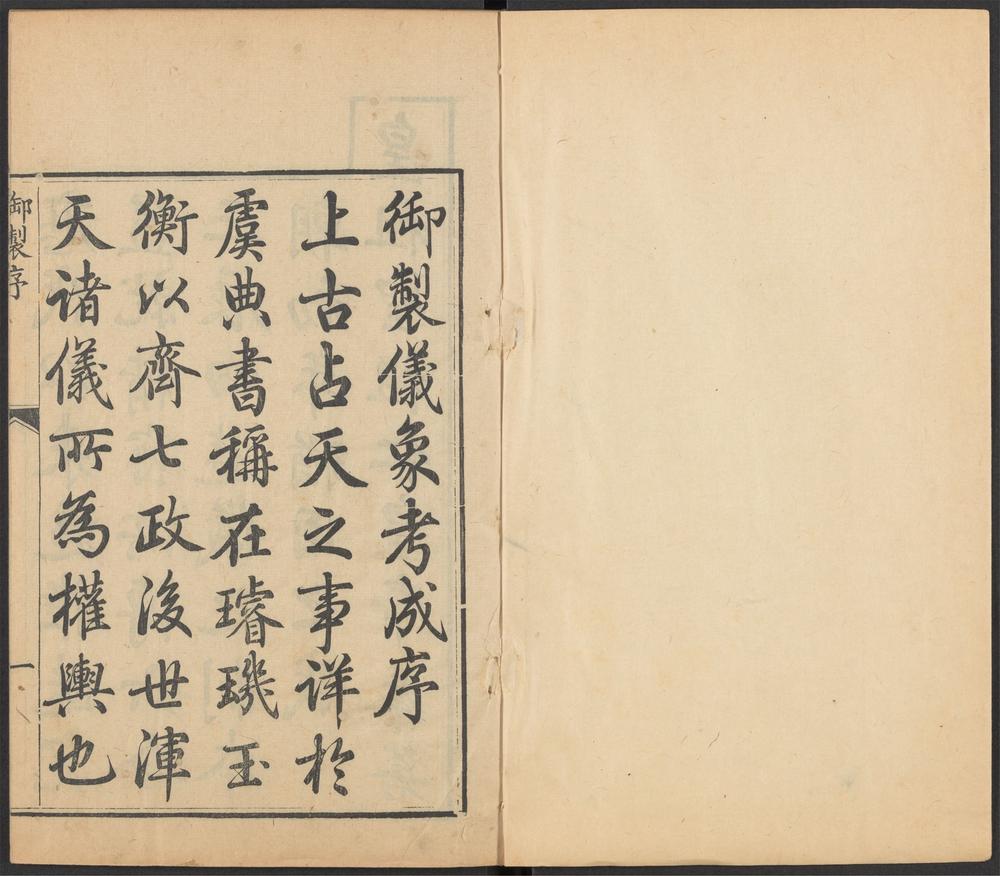 御製儀象考成序
上古占天之事詳於
虞典書稱在璿璣玉
衡以齊七政後世渾
天諸儀所為權輿也
御製序
一